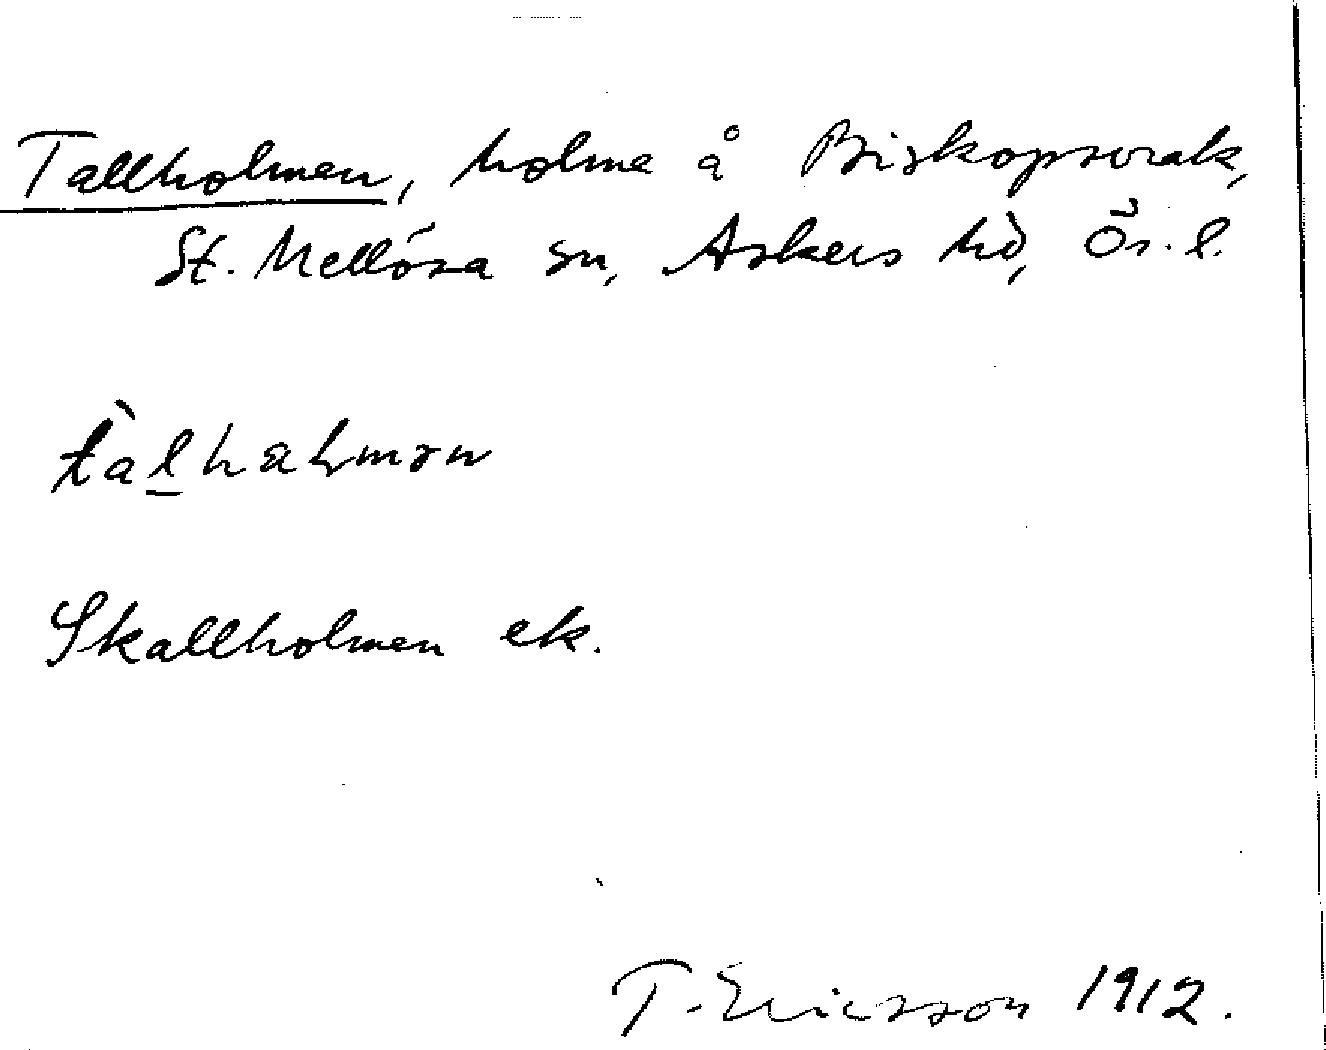 Tallholmen, holme å Biskopsvrak,
St. Mellösa sn, Askers hd, Ör. l.
Skallholmen ek.
T. Ericsson 1912.